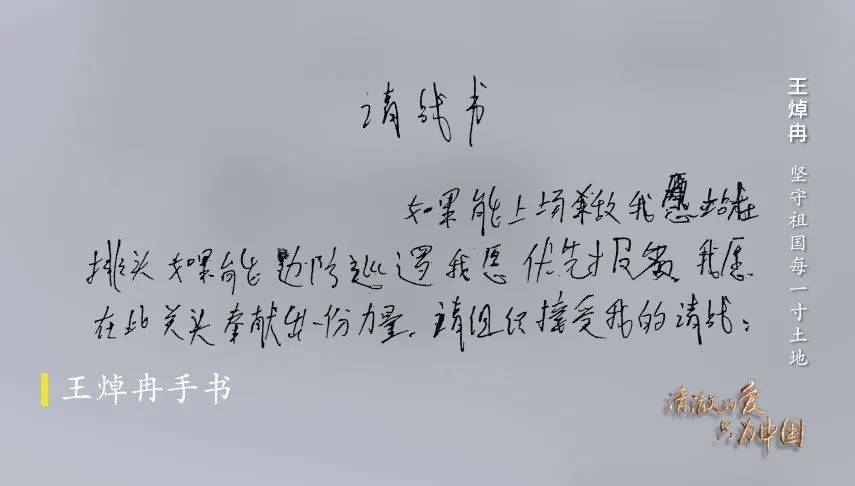 请战书
如果能上场杀敌我愿站在
排头如果能边防巡逻我愿优先报名、我愿
在此关头奉献出一份力量。请组织接受我的请战:
王焯冉手书
王焯冉 坚守祖国每一寸土地
清澈的爱
只为中国